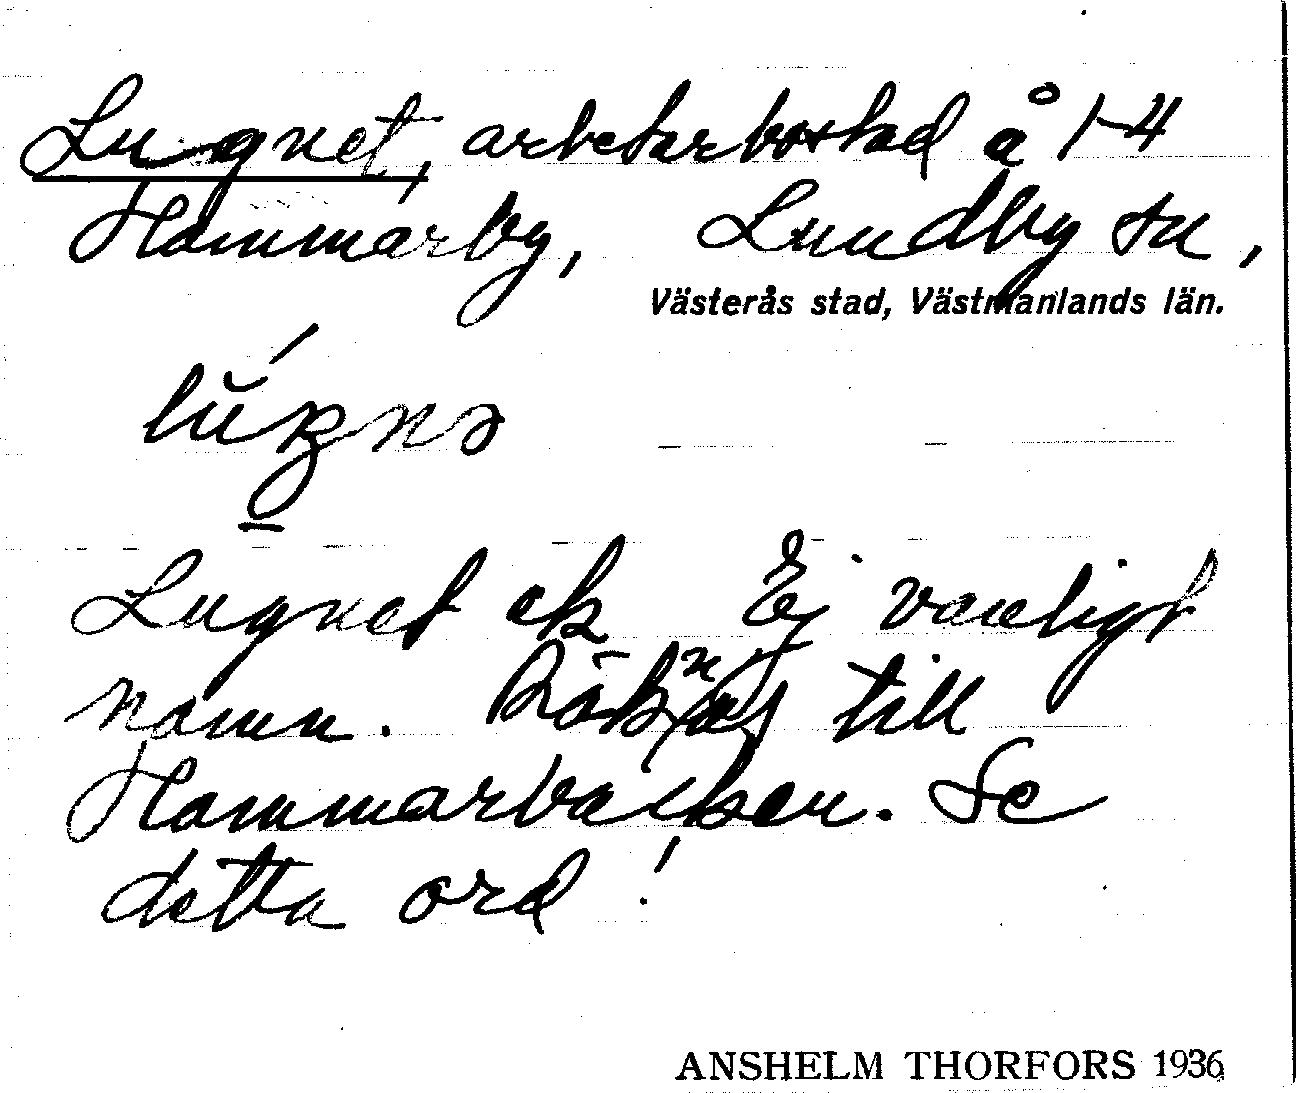 Lugnet, arbetarbostad å 1-4
Hammarby, Lundby sn,
Västerås stad, Västmanlands län.
Lugnet ek Ej vanligt
namn. Räknas till
Hammarbacken. Se
detta ord!
ANSHELM THORFORS 1936